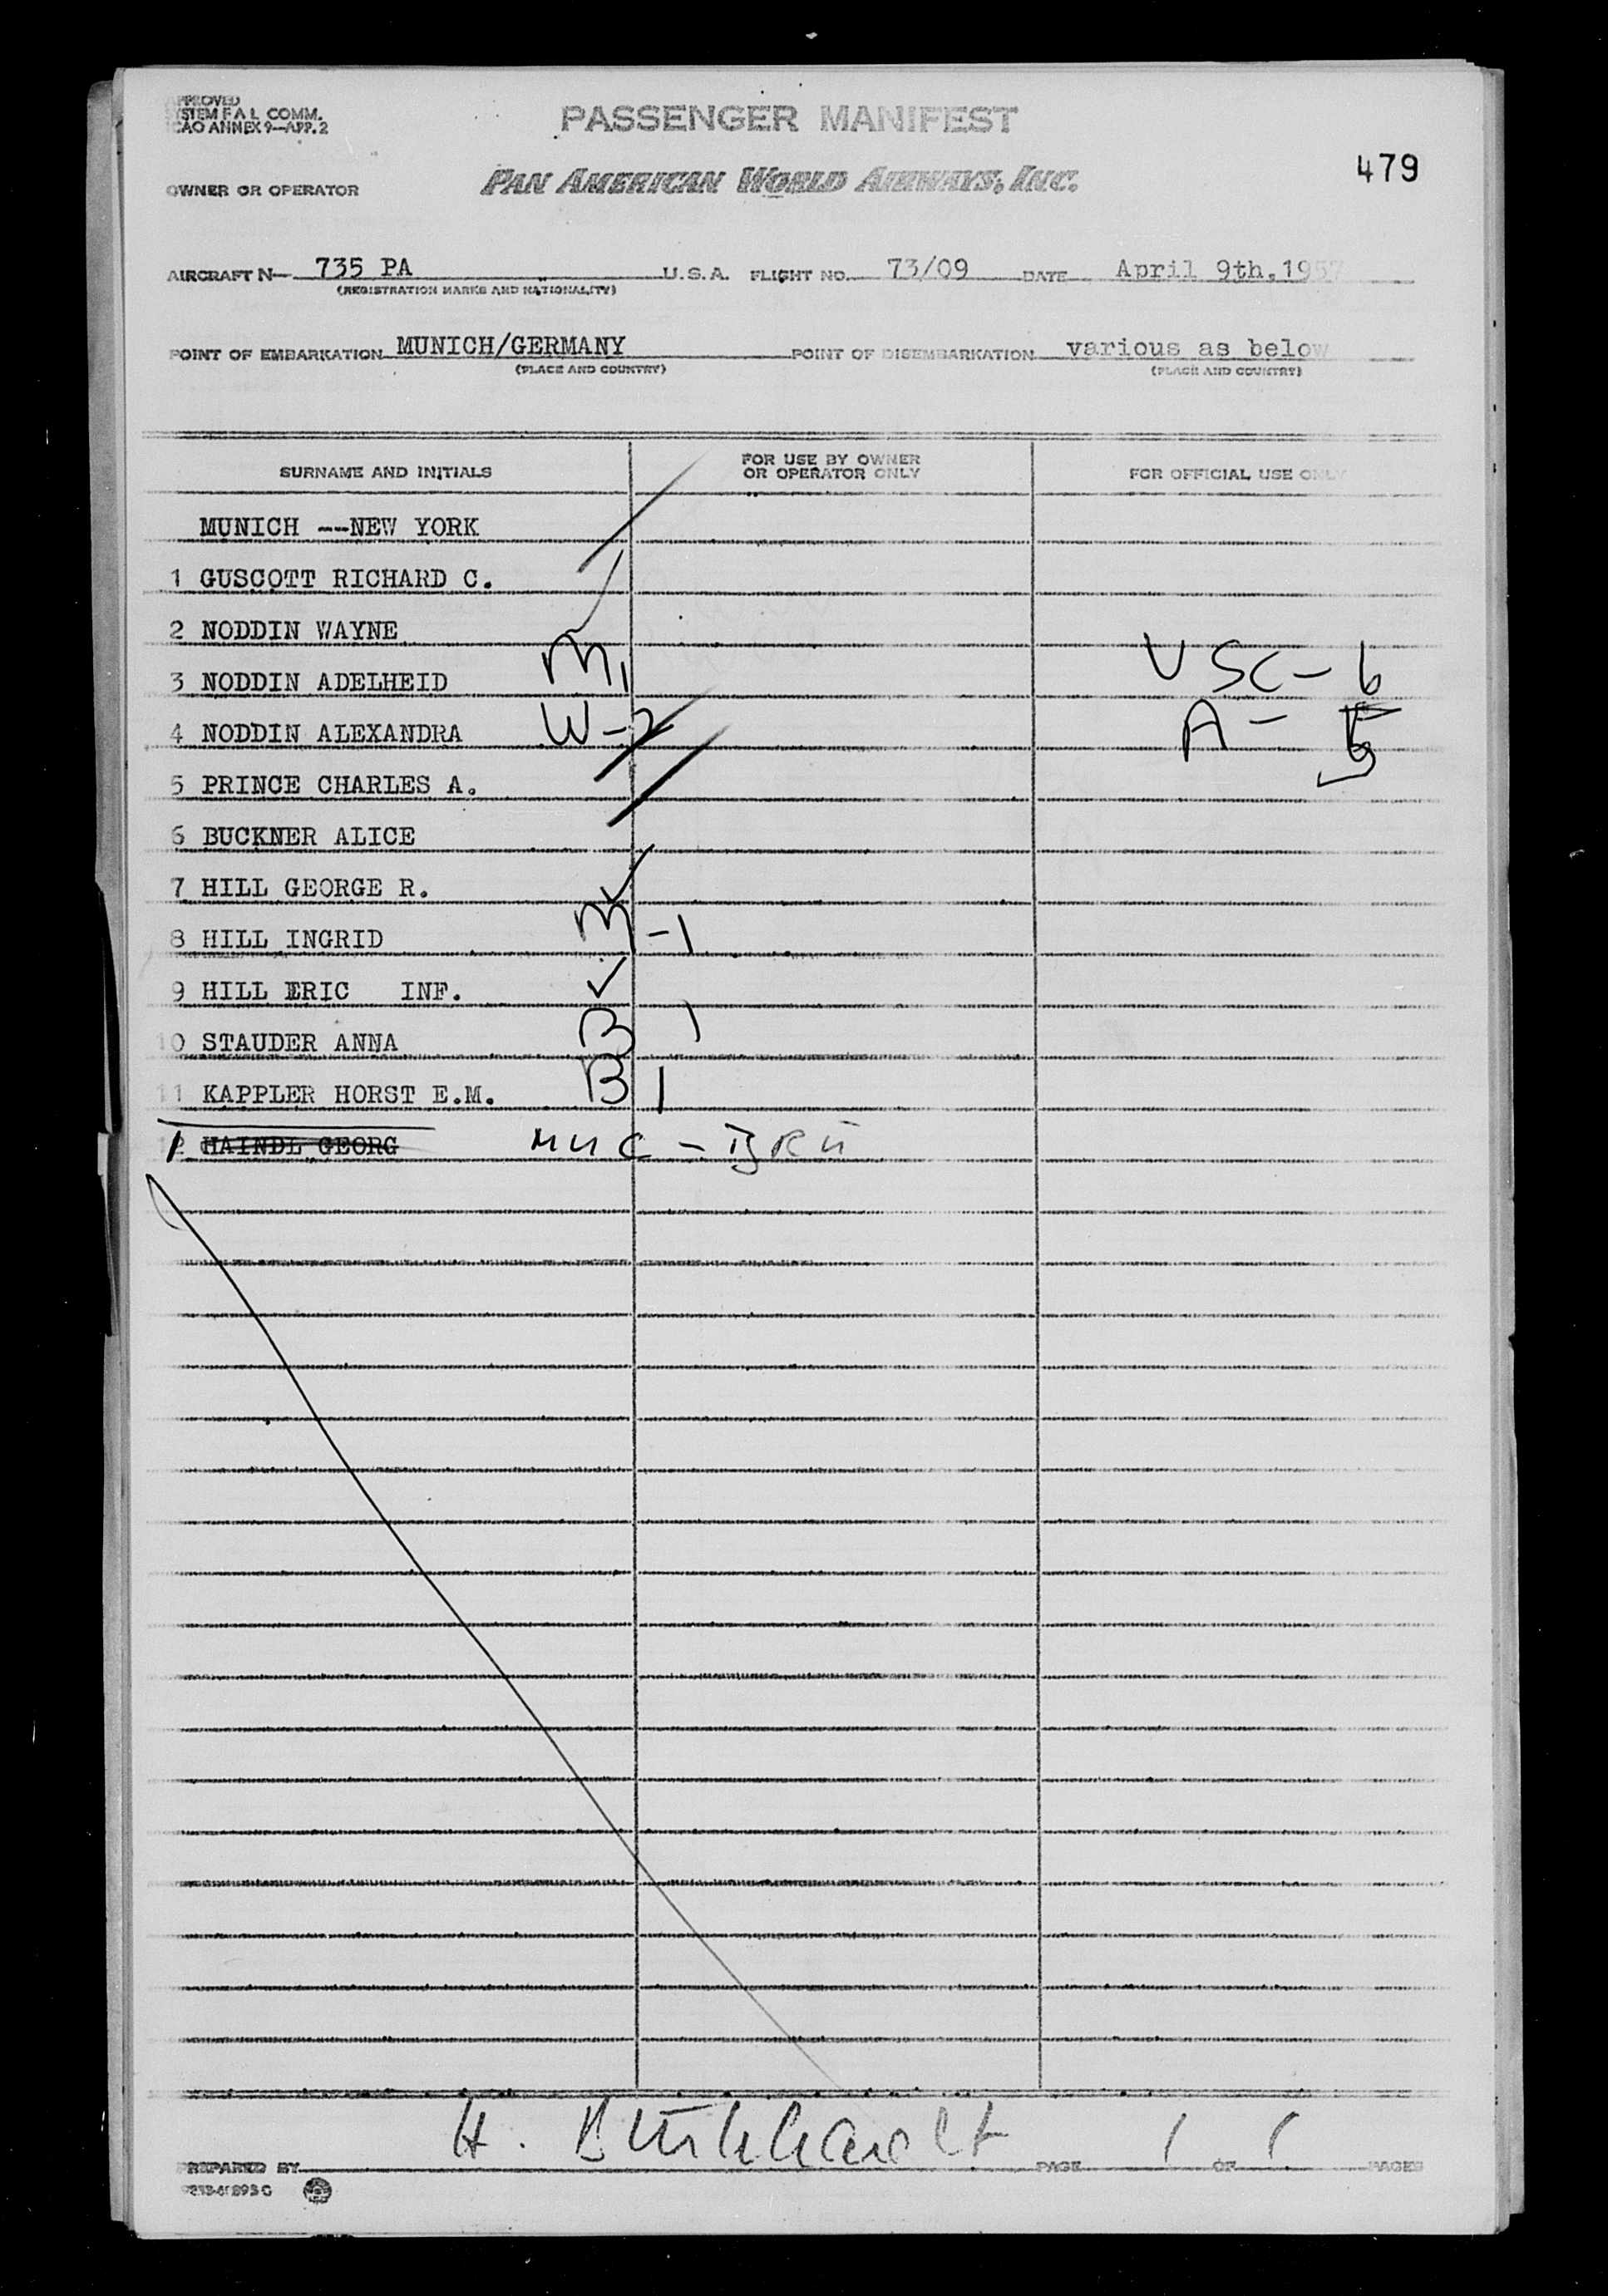 APPROVED
SYSTEM F A L COMM.
ICAO ANNEX 9—APP. 2
PASSENGER MANIFEST
479
OWNER OR OPERATOR PAN AMERICAN WORLD AIRWAYS, INC.
AIRCRAFT N— 735 PA U.S.A. FLIGHT NO. 73/09 DATE April 9th,1957
(REGISTRATION MARKS AND NATIONALITY)
POINT OF EMBARKATION MUNICH/GERMANY POINT OF DISEMBARKATION various as below
(PLACE AND COUNTRY) (PLACE AND COUNTRY)
SURNAME AND INITIALS FOR USE BY OWNER OR OPERATOR ONLY FOR OFFICIAL USE ONLY
MUNICH --NEW YORK
1 GUSCOTT RICHARD C.
2 NODDIN WAYNE
3 NODDIN ADELHEID M 1 USC - 6
4 NODDIN ALEXANDRA W - 2 A - 5
5 PRINCE CHARLES A.
6 BUCKNER ALICE
7 HILL GEORGE R. ✓
8 HILL INGRID M - 1
9 HILL ERIC INF. ✓
10 STAUDER ANNA B 1
11 KAPPLER HORST E.M. B 1
12 HAINDL GEORG MUC - BRU
H. Burkhardt 1 1
PREPARED BY PAGE OF PAGES